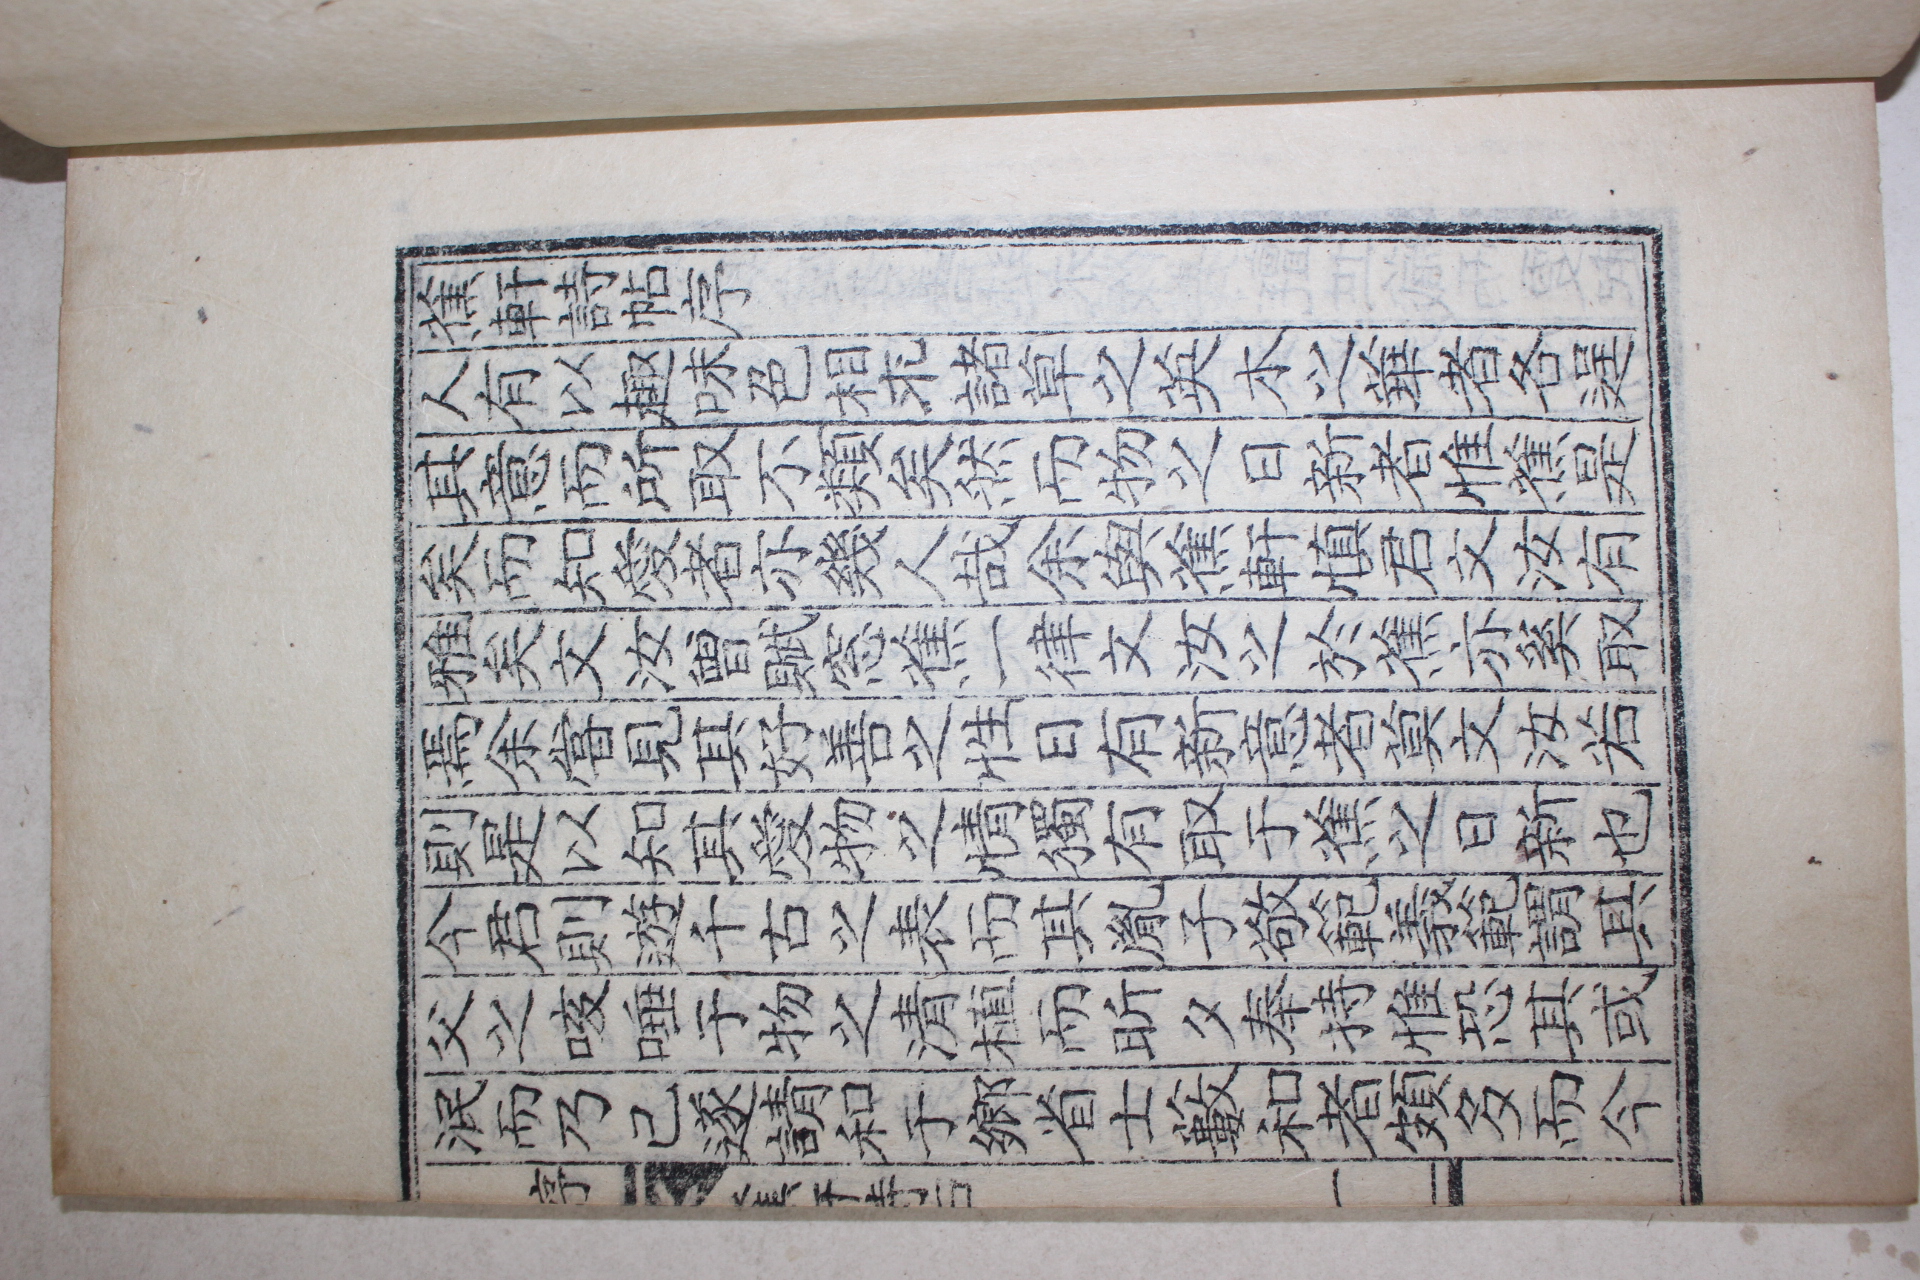 蕉軒詩帖序
人有以趣味色相求諸草之英木之華者各逞
其意而所取不類矣然而物之日新者惟蕉是
矣而知愛者亦幾人哉余與蕉軒愼君文汝有
雅矣文汝曾賦窓蕉一律文汝之於蕉亦奚取
焉余嘗見其好善之性日有新意者莫文汝若
則是以知其愛物之情獨有取于蕉之日新也
今君則遊千古之表而其胤子敬範義範謂其
父之咳唾于物之清植而昕夕奉持惟恐其或
泯而乃已遂請和于鄉省士藪和者頗多而今
序
蕉軒詩
一